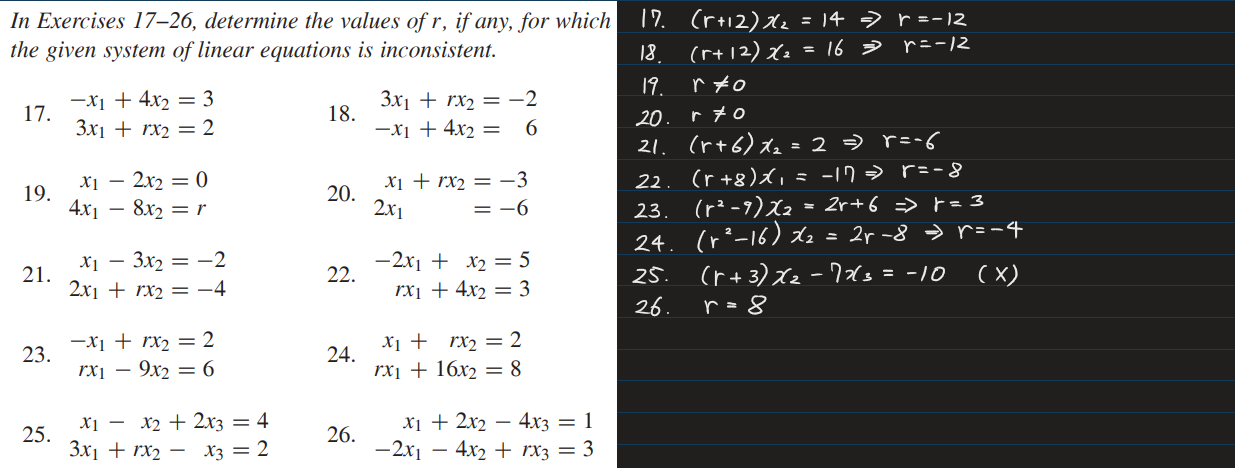 In Exercises 17–26, determine the values of r, if any, for which
the given system of linear equations is inconsistent.
17. −x₁ + 4x₂ = 3
3x₁ + rx₂ = 2
18. 3x₁ + rx₂ = −2
−x₁ + 4x₂ = 6
19. x₁ − 2x₂ = 0
4x₁ − 8x₂ = r
20. x₁ + rx₂ = −3
2x₁ = −6
21. x₁ − 3x₂ = −2
2x₁ + rx₂ = −4
22. −2x₁ + x₂ = 5
rx₁ + 4x₂ = 3
23. −x₁ + rx₂ = 2
rx₁ − 9x₂ = 6
24. x₁ + rx₂ = 2
rx₁ + 16x₂ = 8
25. x₁ − x₂ + 2x₃ = 4
3x₁ + rx₂ − x₃ = 2
26. x₁ + 2x₂ − 4x₃ = 1
−2x₁ − 4x₂ + rx₃ = 3
17. (r+12)x₂ = 14 ⇒ r=-12
18. (r+12)x₂ = 16 ⇒ r=-12
19. r≠0
20. r≠0
21. (r+6)x₂ = 2 ⇒ r=-6
22. (r+8)x₁ = -17 ⇒ r=-8
23. (r²-9)x₂ = 2r+6 ⇒ r=3
24. (r²-16)x₂ = 2r-8 ⇒ r=-4
25. (r+3)x₂ - 7x₃ = -10 (X)
26. r=8